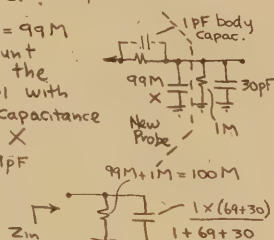 = 99M
unt
the
l with
Capacitance
X
1pF
1PF body
Capac.
99M
X
30pF
New
Probe
1M
99M+1M = 100M
Zin
1 x (69+30)
1 + 69 + 30